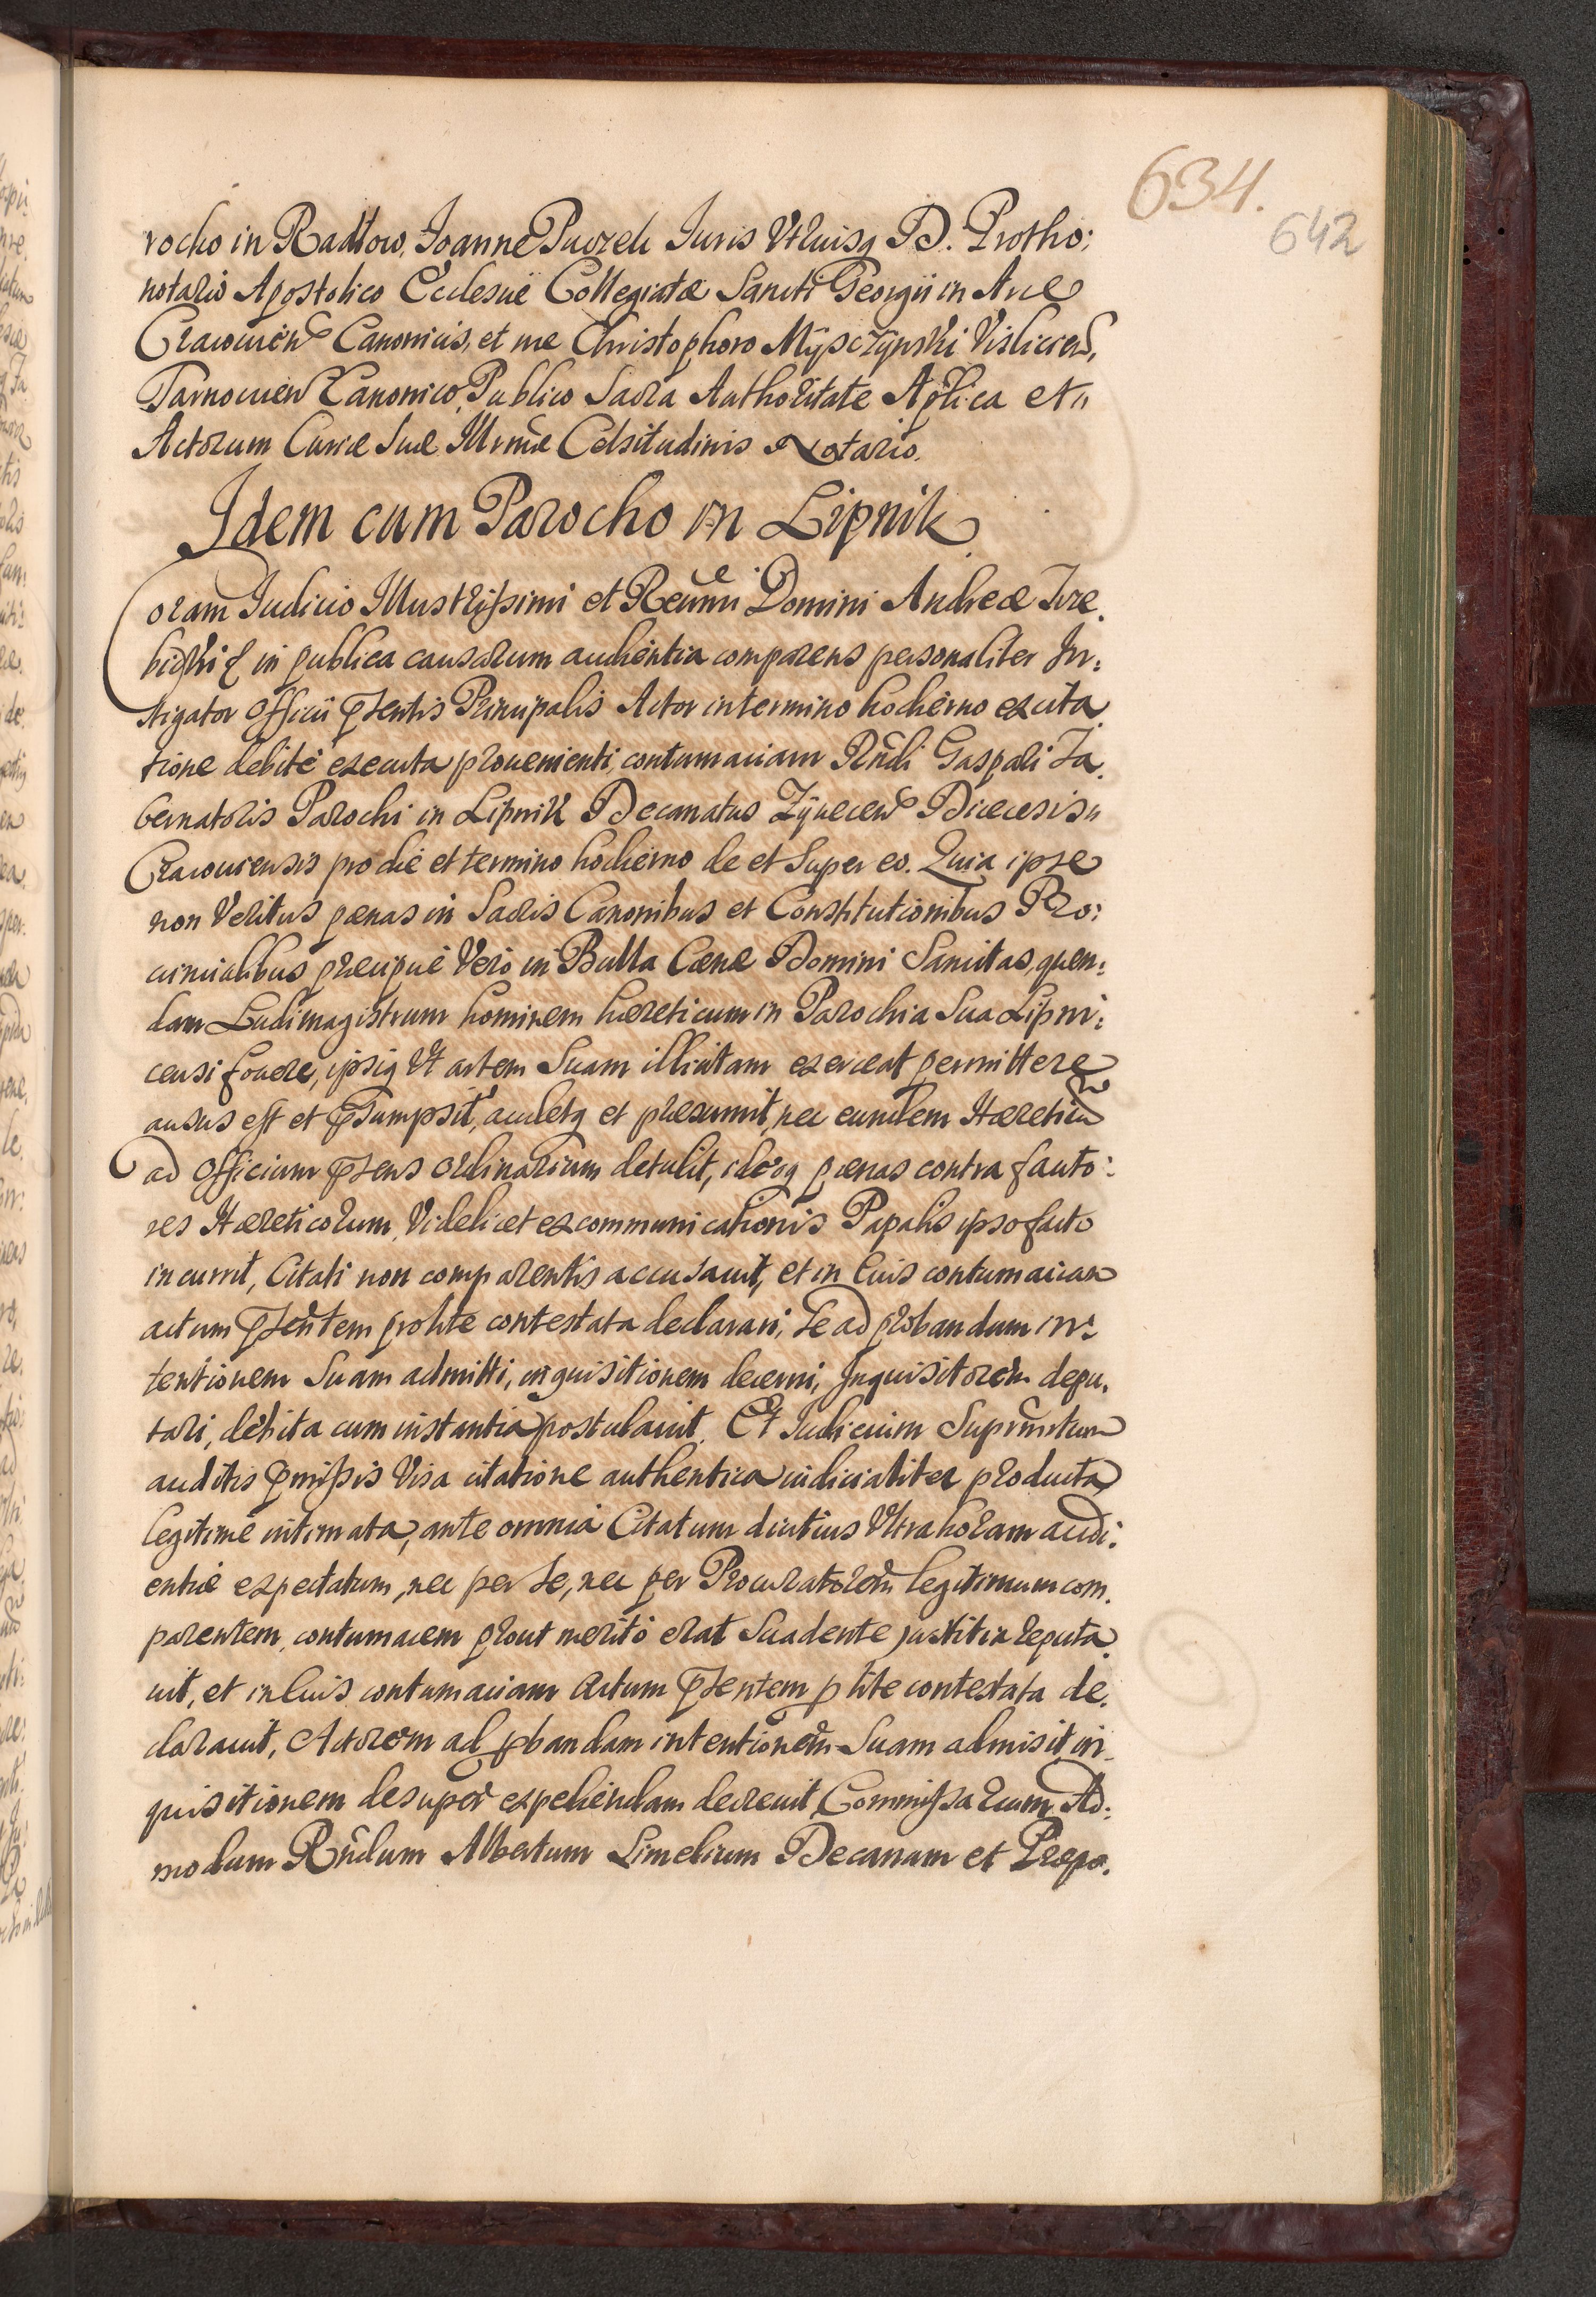 634.
642
rocho in Radłow, Joanne Puczek Juris Vtriusq D. Protho:
notario Apostolico Ecclesiæ Collegiatæ Sancti Georgii in Arce
Cracouien Canonicis, et me Christophoro Mÿsczÿnski Visliciens,
Tarnouien Canonico, Publico Sacra Authoritate Aplica et
Actorum Curiæ Suæ Illrmæ Celsitudinis Notario.
Idem cum Parocho in Lipnik
Coram Judicio Illustrissimi et Reuermi Domini Andreæ Tre.
bicki & in publica causarum audientia comparens personaliter In:
stigator Officii pntis Principalis Actor in termino hodierno ex cita.
tione debite executa prouenienti, contumaciam Rndi Gaspari Ta.
bernatoris Parochi in Lipnik Decanatus Zÿuecen Diæcesis
Cracouiensis pro die et termino hodierno de et Super eo. Quia ipse
non Veritus pœnas in Sacris Canonibus et Constitutionibus Pro:
uincialibus præcipuè Vero in Bulla Cœnæ Domini Sancitas, quen:
dam Ludimagistrum hominem hæreticum in Parochia Sua Lipni:
censi fouere, ipsiq Vt artem Suam illicitam exerceat permittere
ausus est et psumpsit, audetq et præsumit, nec eundem Hæreticu
ad Officium psens ordinarium detulit, ideoq pœnas contra fauto:
res Hæreticorum, Videlicet excommunicationis Papalis ipso facto
incurrit, Citati non comparentis accusauit, et in Cuis contumaciam
actum psentem pro lite contestata declarari, Se ad probandum in:
tentionem Suam admitti, inquisitionem decerni, Inquisitorem depu.
tari, debita cum instantia postulauit. Et Judicium Suprmtum
auditis pmissis Visa citatione authentica iudicialiter producta
legitimè intimata, ante omnia Citatum diutius Vltra horam audi:
entiæ expectatum, nec per Se, nec per Procuratorem legitimum com.
parentem, contumacem prout meritò erat Suadente justitia reputa.
uit, et in Cuis contumaciam actum psentem p lite contestata de.
clarauit, Actorem ad pbandam intentionem Suam admisit in
quisitionem desuper expediendam decreuit Commissarium Ad:
modum Rndum Albertum Simelium Decanum et Præpo.